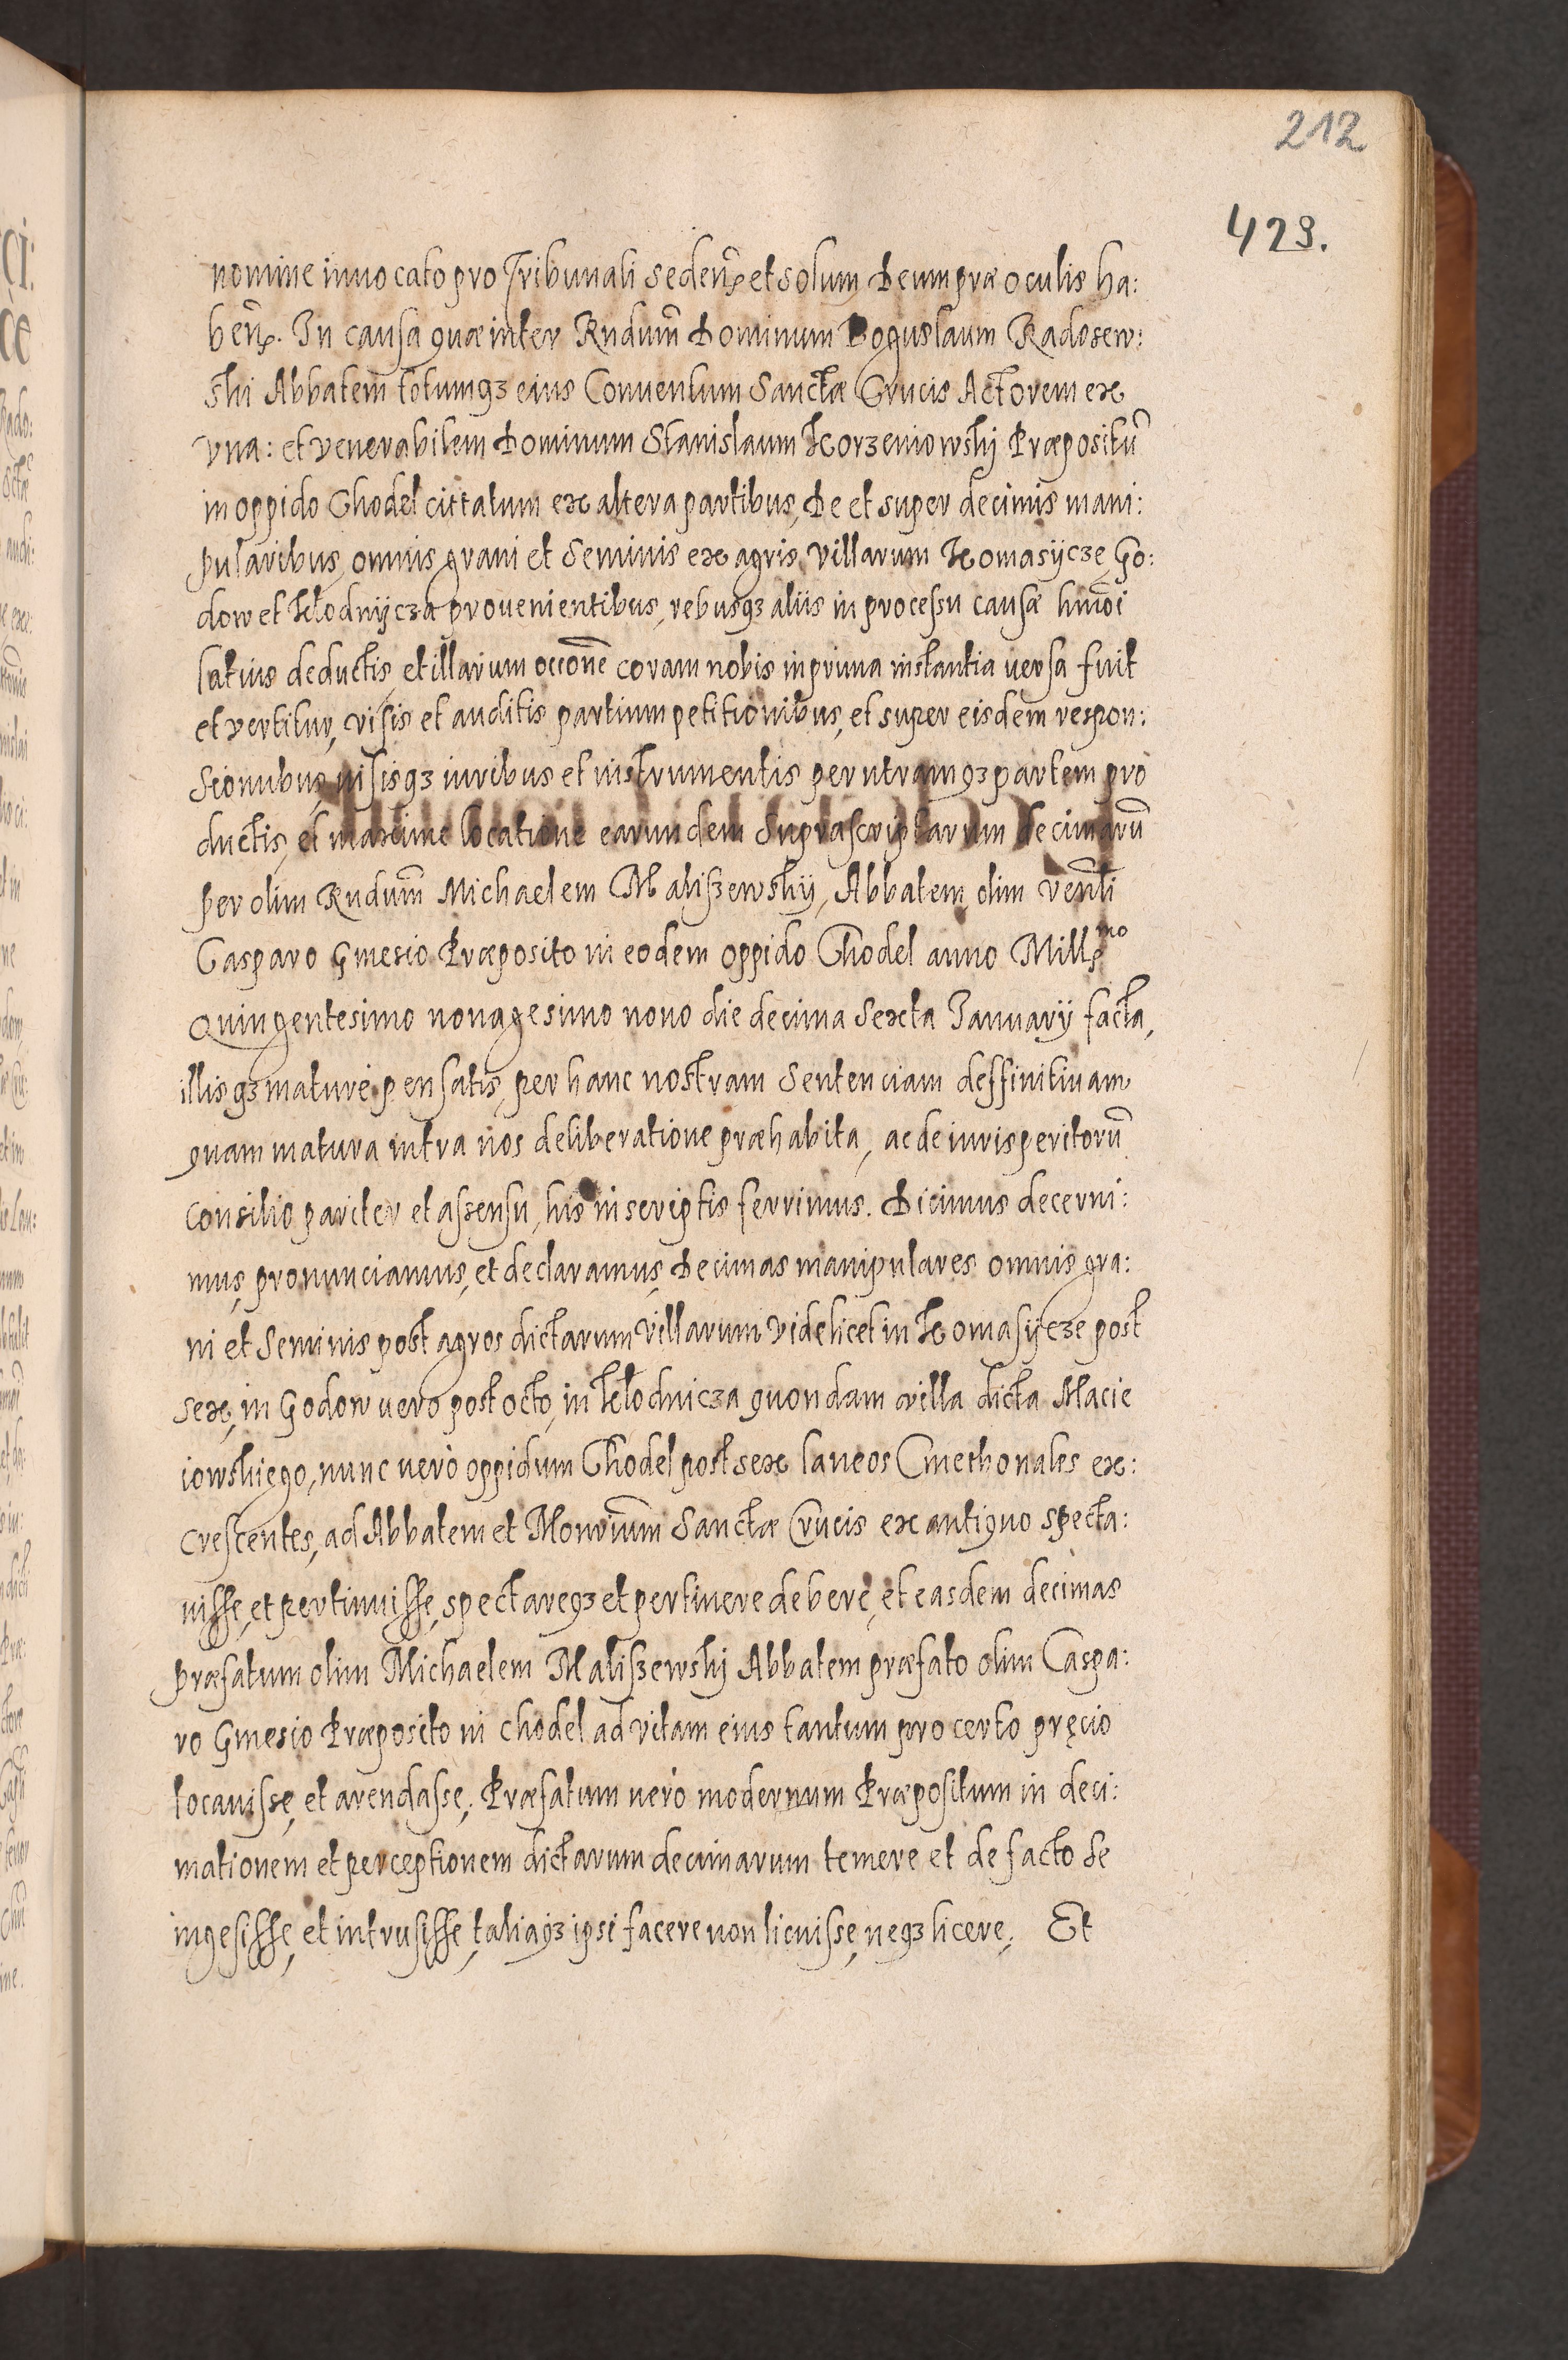 212
429.
nomine inuocato pro Tribunali sedeñ, et solum Deum præ oculis ha:
beñ. In causa quæ inter Rndum̃ Dominum Boguslaum Radosew:
ski Abbatem totumqз eius Conuentum Sanctæ Crucis Actorem ex
vna: et venerabilem Dominum Stanislaum Korzeniowski Præpositũ
in oppido Chodel cittatum ex altera partibus, De et super decimis mani:
pularibus, omnis grani et Seminis ex agris, villarum Komasÿcze, Go:
dow et Kłodnÿcza prouenientibus, rebusqз aliis in processu causæ hmõi
latius deductis, et illarum occõne coram nobis in prima instantia uersa fuit
et vertitur, visis et auditis partium petitionibus, et super eisdem respon:
sionubus, uisisqз iuribus et instrumentis per utramqз partem pro
ductis, et maxime locatione earundem Suprascriptarum decimarũ
per olim Rndum̃ Michaelem Maliszewskÿ, Abbatem, olim Veñli
Casparo Gmesio Præposito in eodem oppido Chodel anno Mill̃mo
Quingentesimo nonagesimo nono die decima Sexta Januarÿ facta,
illisqз maturè pensatis, per hanc nostram Sentenciam deffinitiuam
quam matura intra nos deliberatione præhabita, ac de iurisperitorũ
consilio pariter et assensu, his in scriptis ferrimus. Dicimus decerni:
mus, pronunciamus, et declaramus, Decimas manipulares omnis gra:
ni et Seminis post agros dictarum Villarum videlicet in Komasÿcze post
sex, in Godow uero post octo, in Kłodnicza quondam villa dicta Macie
iowskiego, nunc uerò oppidum Chodel post sex laneos Cmethonales ex:
crescentes, ad Abbatem et Monrium̃ Sanctæ Crucis ex antiquo specta:
uisse, et pertinuisse, spectareqз et pertinere debere, et easdem decimas
præfatum olim Michaelem Maliszewski Abbatem præfato olim Caspa:
ro Gmesio Præposito in Chodel ad vitam eius tantum pro certo pręcio
locauisse, et arendasse, Præfatum uerò modernum Præpositum in deci:
mationem et perceptionem dictarum decimarum temere et de facto se
ingesisse, et intrusisse, taliaqз ipsi facere non licuisse, neqз licere, Et